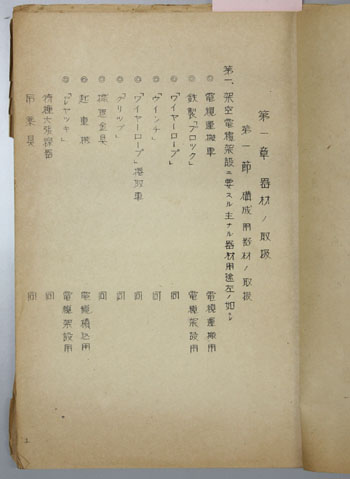 第一章 器材ノ取扱
第一節 構成用器材ノ取扱
第一、架空電纜架設ニ要スル主ナル器材用途左ノ如シ
◎ 電纜重搬車 電纜重搬用
◎ 鉄製「ブロック」 電纜架設用
◎ 「ワイヤーロープ」 同
◎ 「ウインチ」 同
◎ 「ワイヤーロープ」捲取車 同
◎ 「グリップ」 同
◎ 金具 同
◎ 起重機 電纜積込用
◎ 「ジャッキ」 電纜架設用
器 同
同